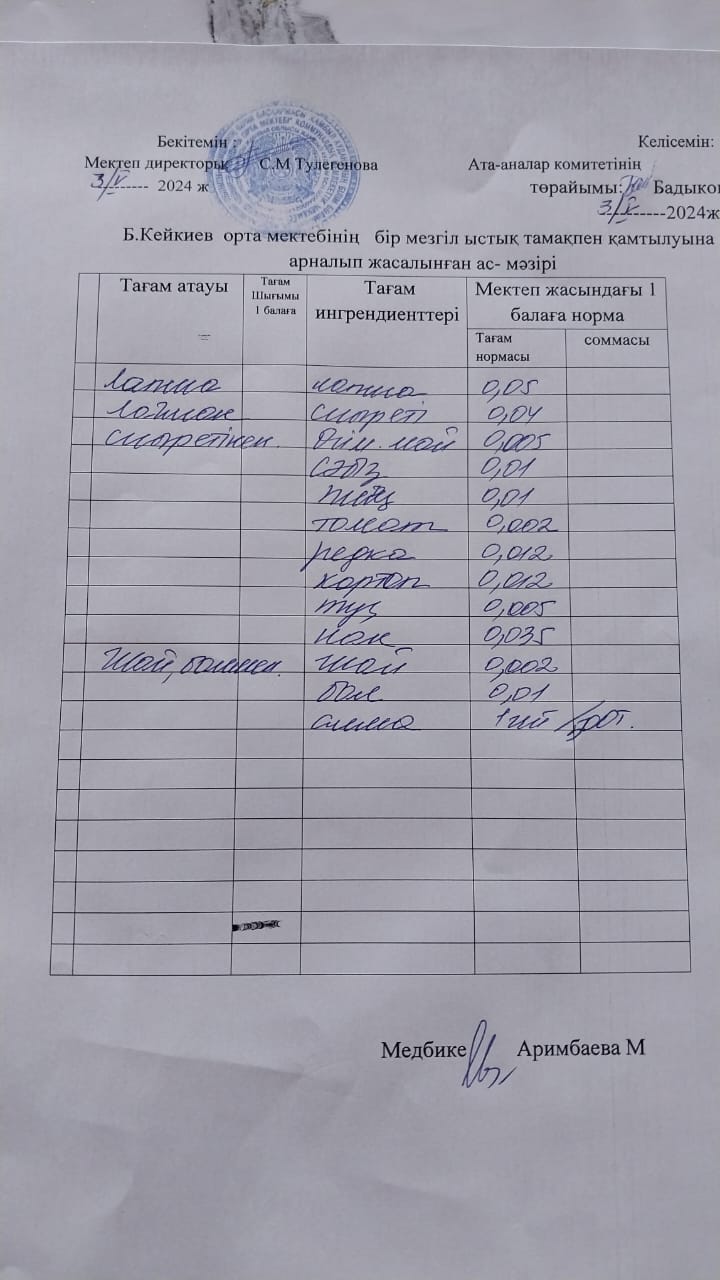 Бекітемін :
Келісемін:
Мектеп директоры С.М Тулегенова
Ата-аналар комитетінің
3/V------ 2024 ж
төрайымы: Бадыков
3/V------2024ж
Б.Кейкиев орта мектебінің бір мезгіл ыстық тамақпен қамтылуына
арналып жасалынған ас- мәзірі
Тағам атауы
Тағам Шығымы 1 балаға
Тағам ингрендиенттері
Мектеп жасындағы 1 балаға норма
Тағам нормасы
соммасы
Лапша лапша 0,05
сиыреті 0,04
сиыретінен. Өсім. май 0,005
сәбіз 0,01
пияз 0,01
томат 0,002
редка 0,012
картоп 0,012
тұз 0,005
нан 0,035
Шай, балмен. шай 0,002
бал 0,01
алма 1 шт
Медбике Аримбаева М